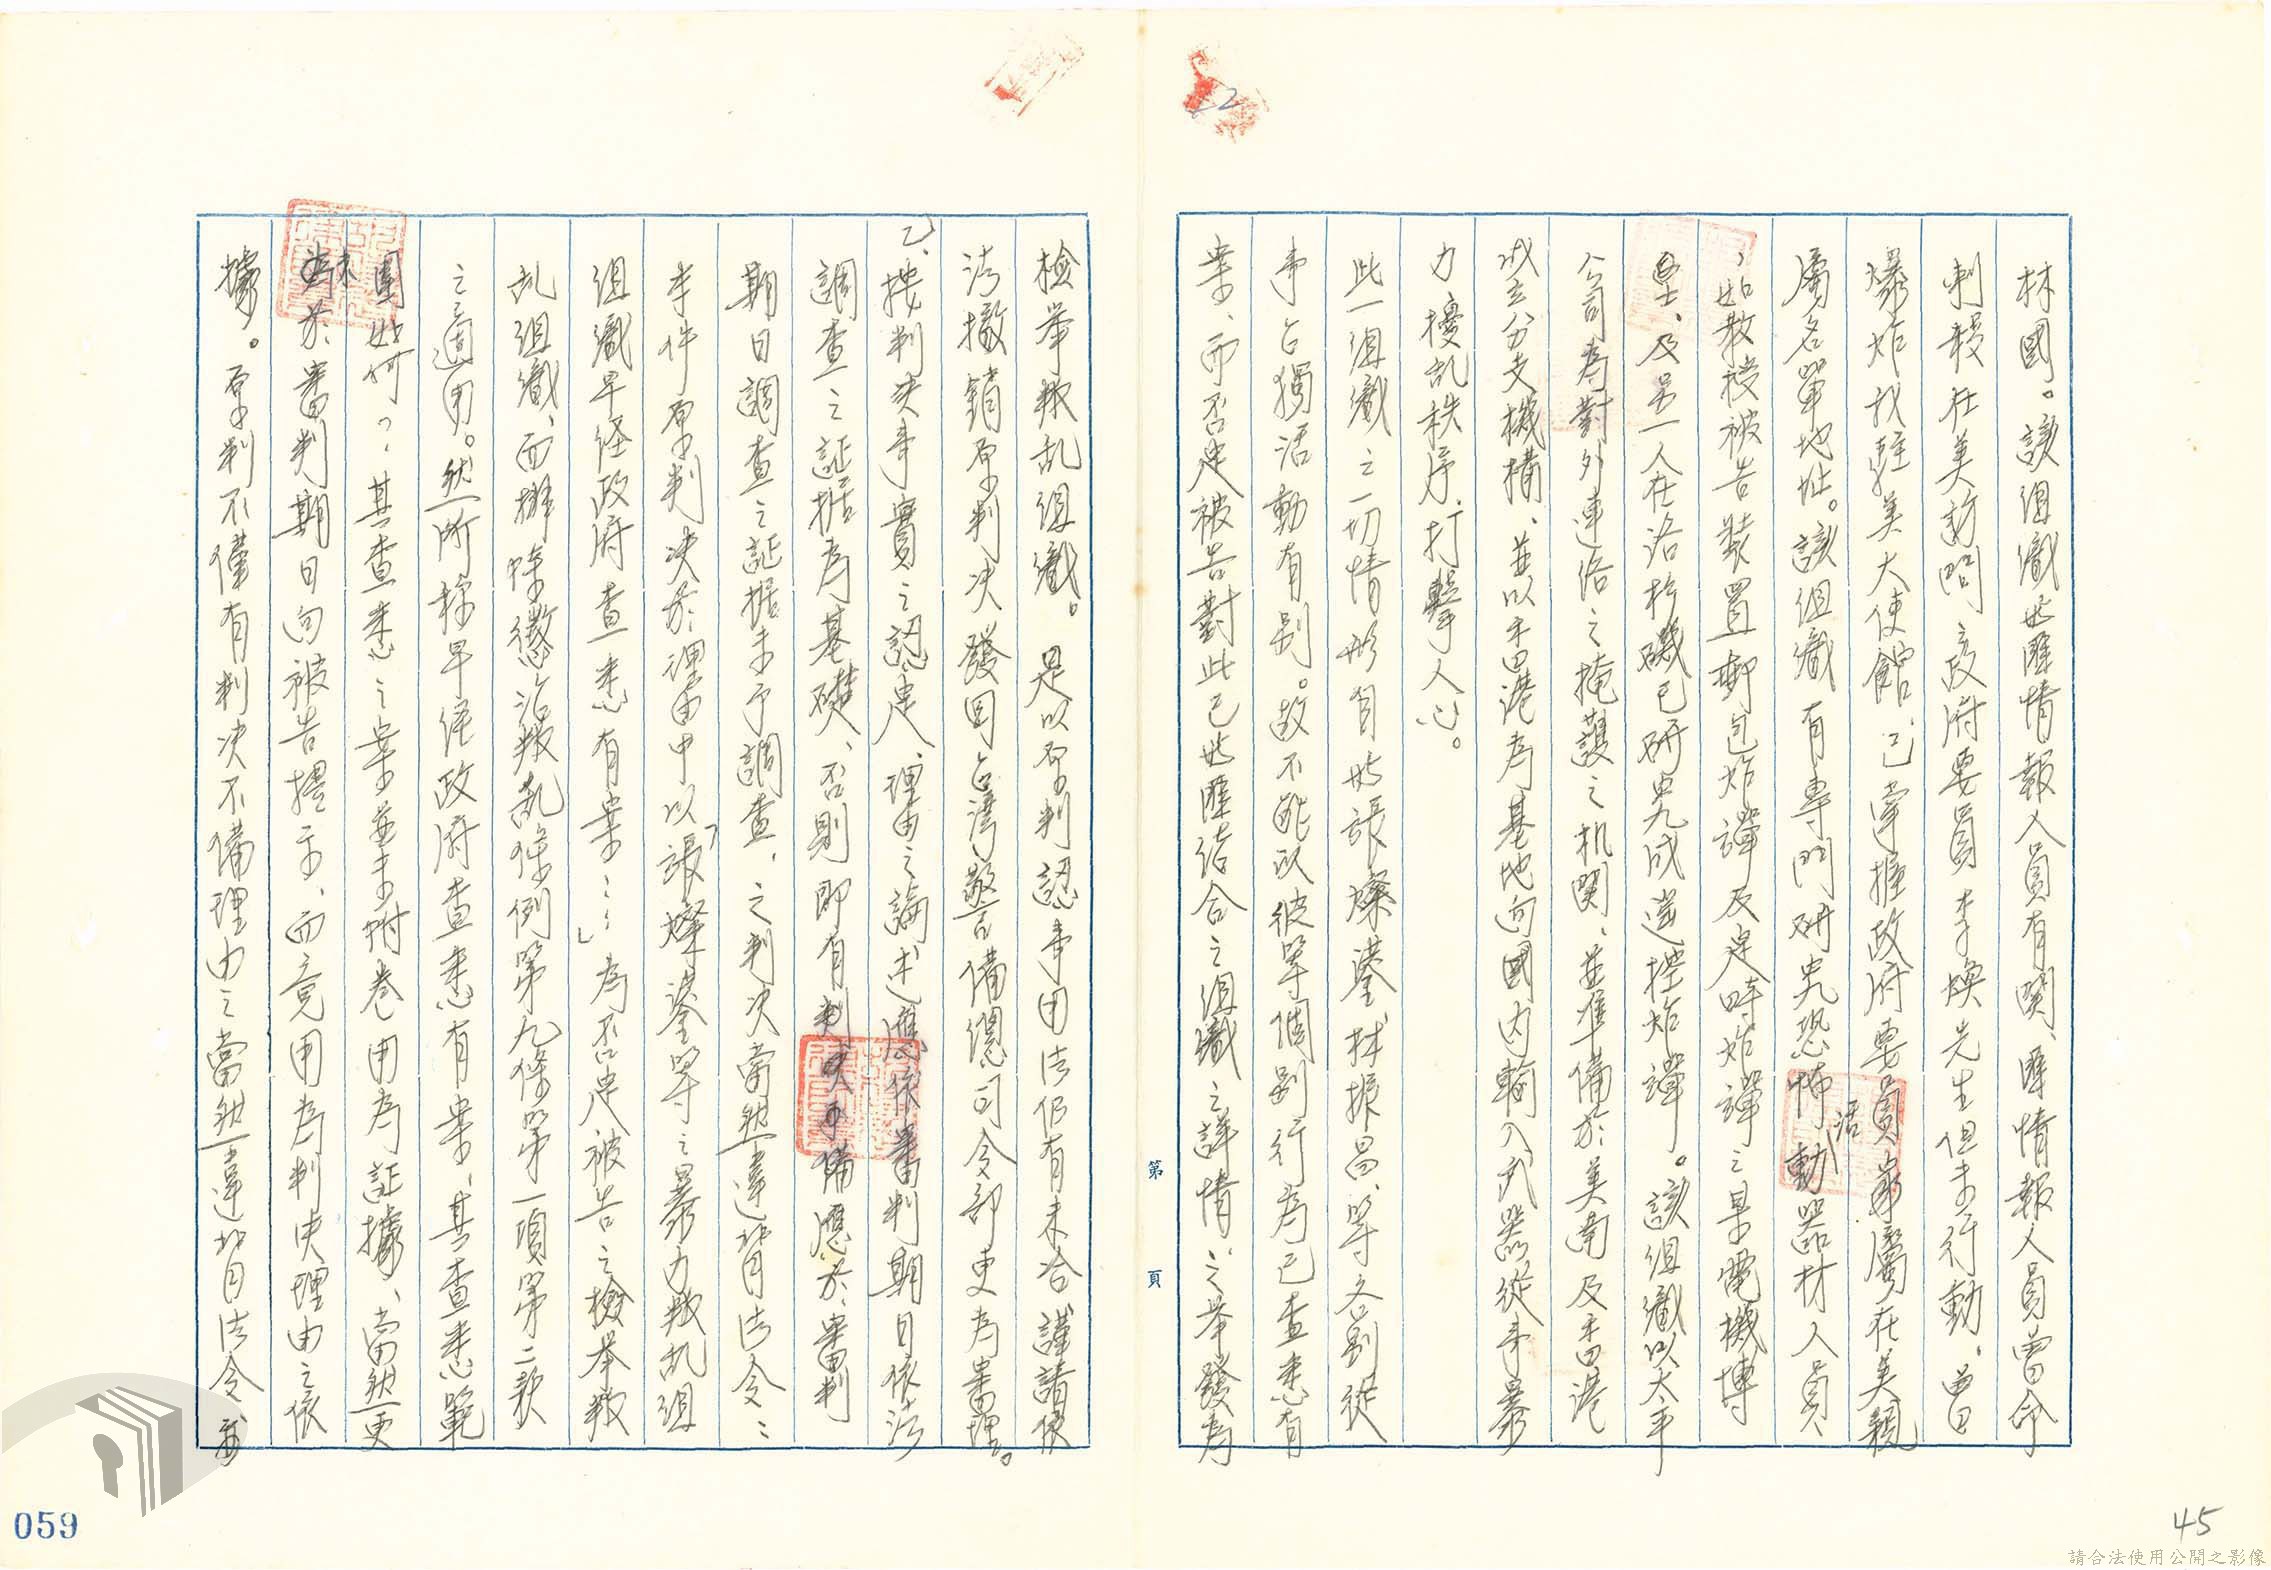 林國。該組織與匪情報人員有関、匪情報人員曾命
刺殺在美訪問之政府要員李煥先生但未行動。曾
爆炸我駐美大使館、已掌握政府要員家屬在美親
屬名單地址。該組織有專門研究恐怖活動器材人員
、如教授被告裝置郵包炸彈及定時炸彈之
及另一人在洛杉磯已研究成遙控炸彈。該組織以太平
公司為對外連絡之掩護之机関、並準備於美南及香港
成立分支機構、並以香港為基地向國內輸入武器從事暴
力擾乱秩序、打擊人心。
此一組織之一切情形自與張燦鍙、林振昌、等各別從
事台獨活動有別。故不能以彼等個別行為已查悉有
案、而否定被告對此已與匪結合之組織之詳情之舉發為
檢举叛乱組織。是以原判認事用法仍有未洽謹請依
法撤銷原判决發回台灣警備總司令部更為審理。
乙、按判决事實之認定、理由之論述應依審判期日依法
調查之証据為基礎、否則即有判决不備應於審判
期日調查之証据未予調查、之判决當然違背法令：
本件原判决於理由中以「張燦鍙等之暴力叛乱組
組織早经政府查悉有案：：」為否定被告之檢举叛
乱組織、而摒棄懲治叛乱條例第九條第一項第二款
之適用。然所稱早经政府查悉有案、其查悉範
圍如何？、其查悉之案並未附卷用為証據、當然更
未於審判期日向被告提示、而竟用為判决理由之依
據。原判不僅有判决不備理由之當然違背法令
第 頁
059
45
22
請合法使用公開之影像